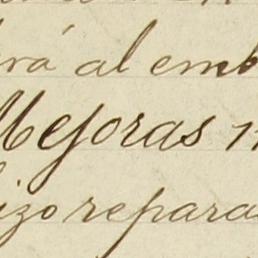 rá al emb
Mejoras
izo repara